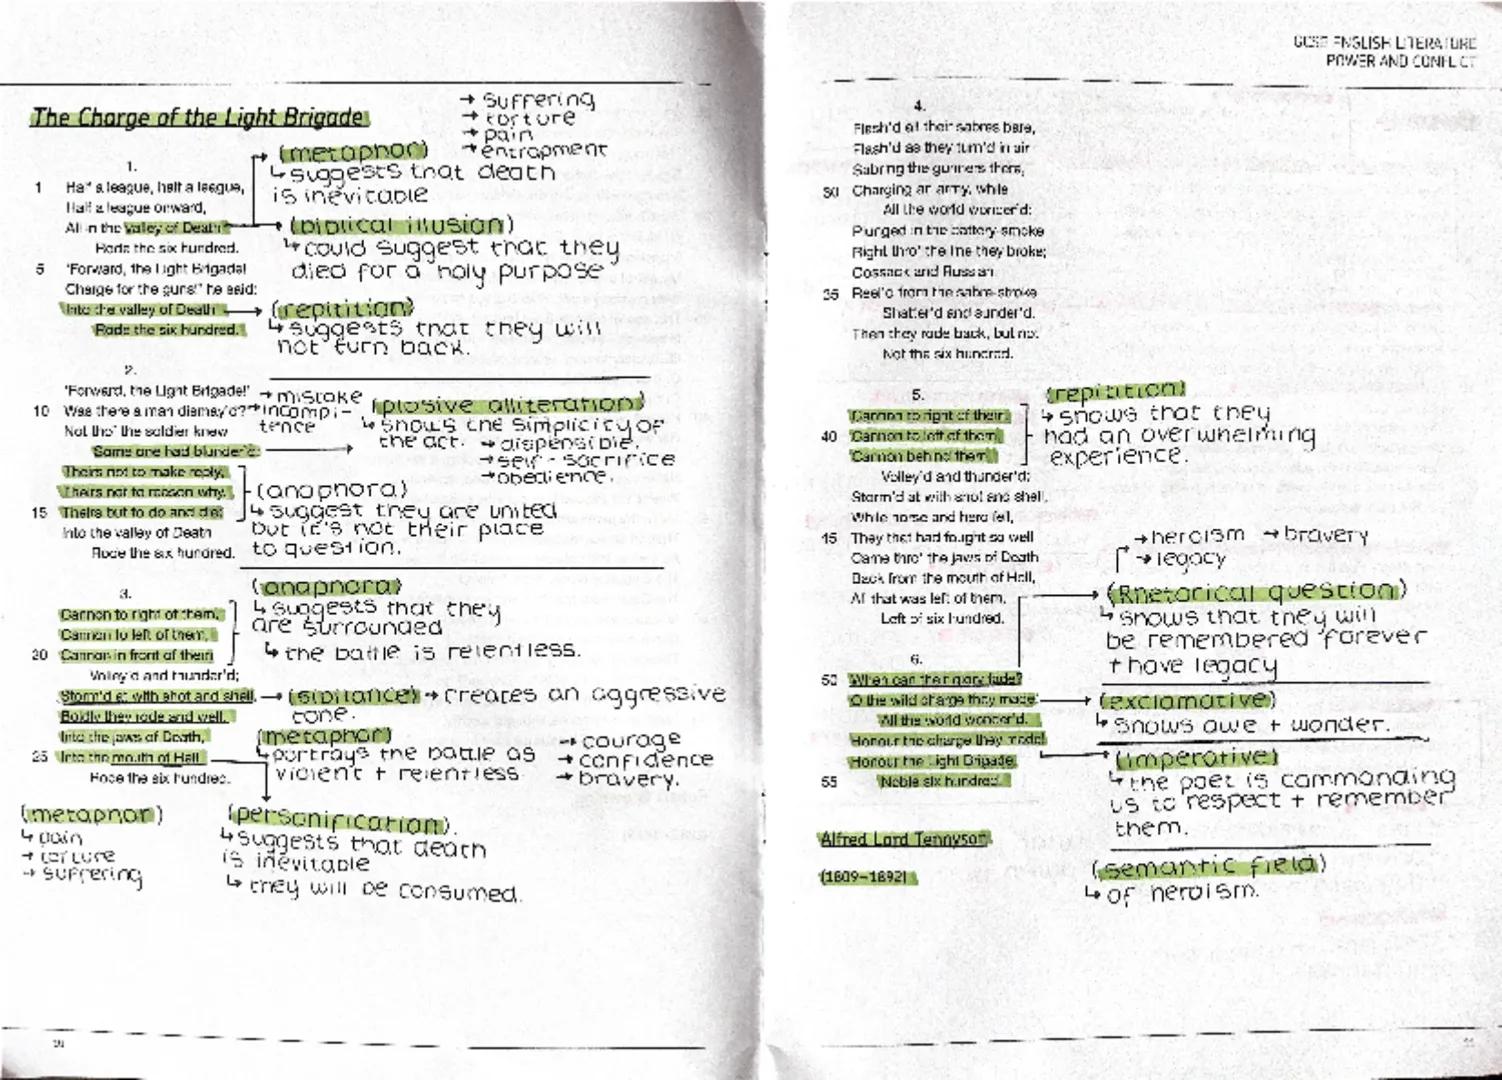 The Charge of the Light Brigade
→ suffering
→ torture
→ pain
→ entrapment
(metaphor)
↳ suggests that death
is inevitable
(biblical illusion)
↳ could suggest that they
died for a holy purpose
1.
1 Half a league, half a league,
Half a league onward,
All in the valley of Death
Rode the six hundred.
5 'Forward, the Light Brigade!
Charge for the guns!' he said:
Into the valley of Death
Rode the six hundred.
(repitition)
↳ suggests that they will
not turn back.
2.
'Forward, the Light Brigade!'
10 Was there a man dismay'd?
Not tho' the soldier knew
Some one had blunder'd:
Theirs not to make reply,
Theirs not to reason why,
15 Theirs but to do and die:
Into the valley of Death
Rode the six hundred.
→ mistake
→ incompi-
tence
(plosive alliteration)
↳ shows the simplicity of
the act. → dispensible.
→ self-sacrifice
→ obedience.
(anaphora)
↳ suggest they are united
but it's not their place
to question.
3.
Cannon to right of them,
Cannon to left of them,
20 Cannon in front of them
Volley'd and thunder'd;
Storm'd at with shot and shell,
Boldly they rode and well,
Into the jaws of Death,
25 Into the mouth of Hell
Rode the six hundred.
(anaphora)
↳ suggests that they
are surrounded
↳ the battle is relentless.
(sibilance) → creates an aggressive
tone.
(metaphor)
↳ portrays the battle as
violent + relentless
→ courage
→ confidence
→ bravery.
(metaphor)
↳ pain
→ torture
→ suffering
(personification).
↳ suggests that death
is inevitable
↳ they will be consumed.
GCSE ENGLISH LITERATURE
POWER AND CONFLICT
4.
Flash'd all their sabres bare,
Flash'd as they turn'd in air
Sabring the gunners there,
30 Charging an army, while
All the world wonder'd:
Plunged in the battery-smoke
Right thro' the line they broke;
Cossack and Russian
35 Reel'd from the sabre-stroke
Shatter'd and sunder'd.
Then they rode back, but not
Not the six hundred.
5.
Cannon to right of them,
40 Cannon to left of them,
Cannon behind them
Volley'd and thunder'd;
Storm'd at with shot and shell,
While horse and hero fell,
45 They that had fought so well
Came thro' the jaws of Death
Back from the mouth of Hell,
All that was left of them,
Left of six hundred.
(repitition)
↳ shows that they
had an overwhelming
experience.
→ heroism → bravery
→ legacy
(Rhetorical question)
↳ shows that they will
be remembered forever
+ have legacy
6.
50 When can their glory fade?
O the wild charge they made!
All the world wonder'd.
Honour the charge they made!
Honour the Light Brigade,
55 Noble six hundred!
(exclamative)
↳ shows awe + wonder.
(imperative)
↳ the poet is commanding
us to respect + remember
them.
(semantic field)
↳ of heroism.
Alfred Lord Tennyson
(1809–1892)